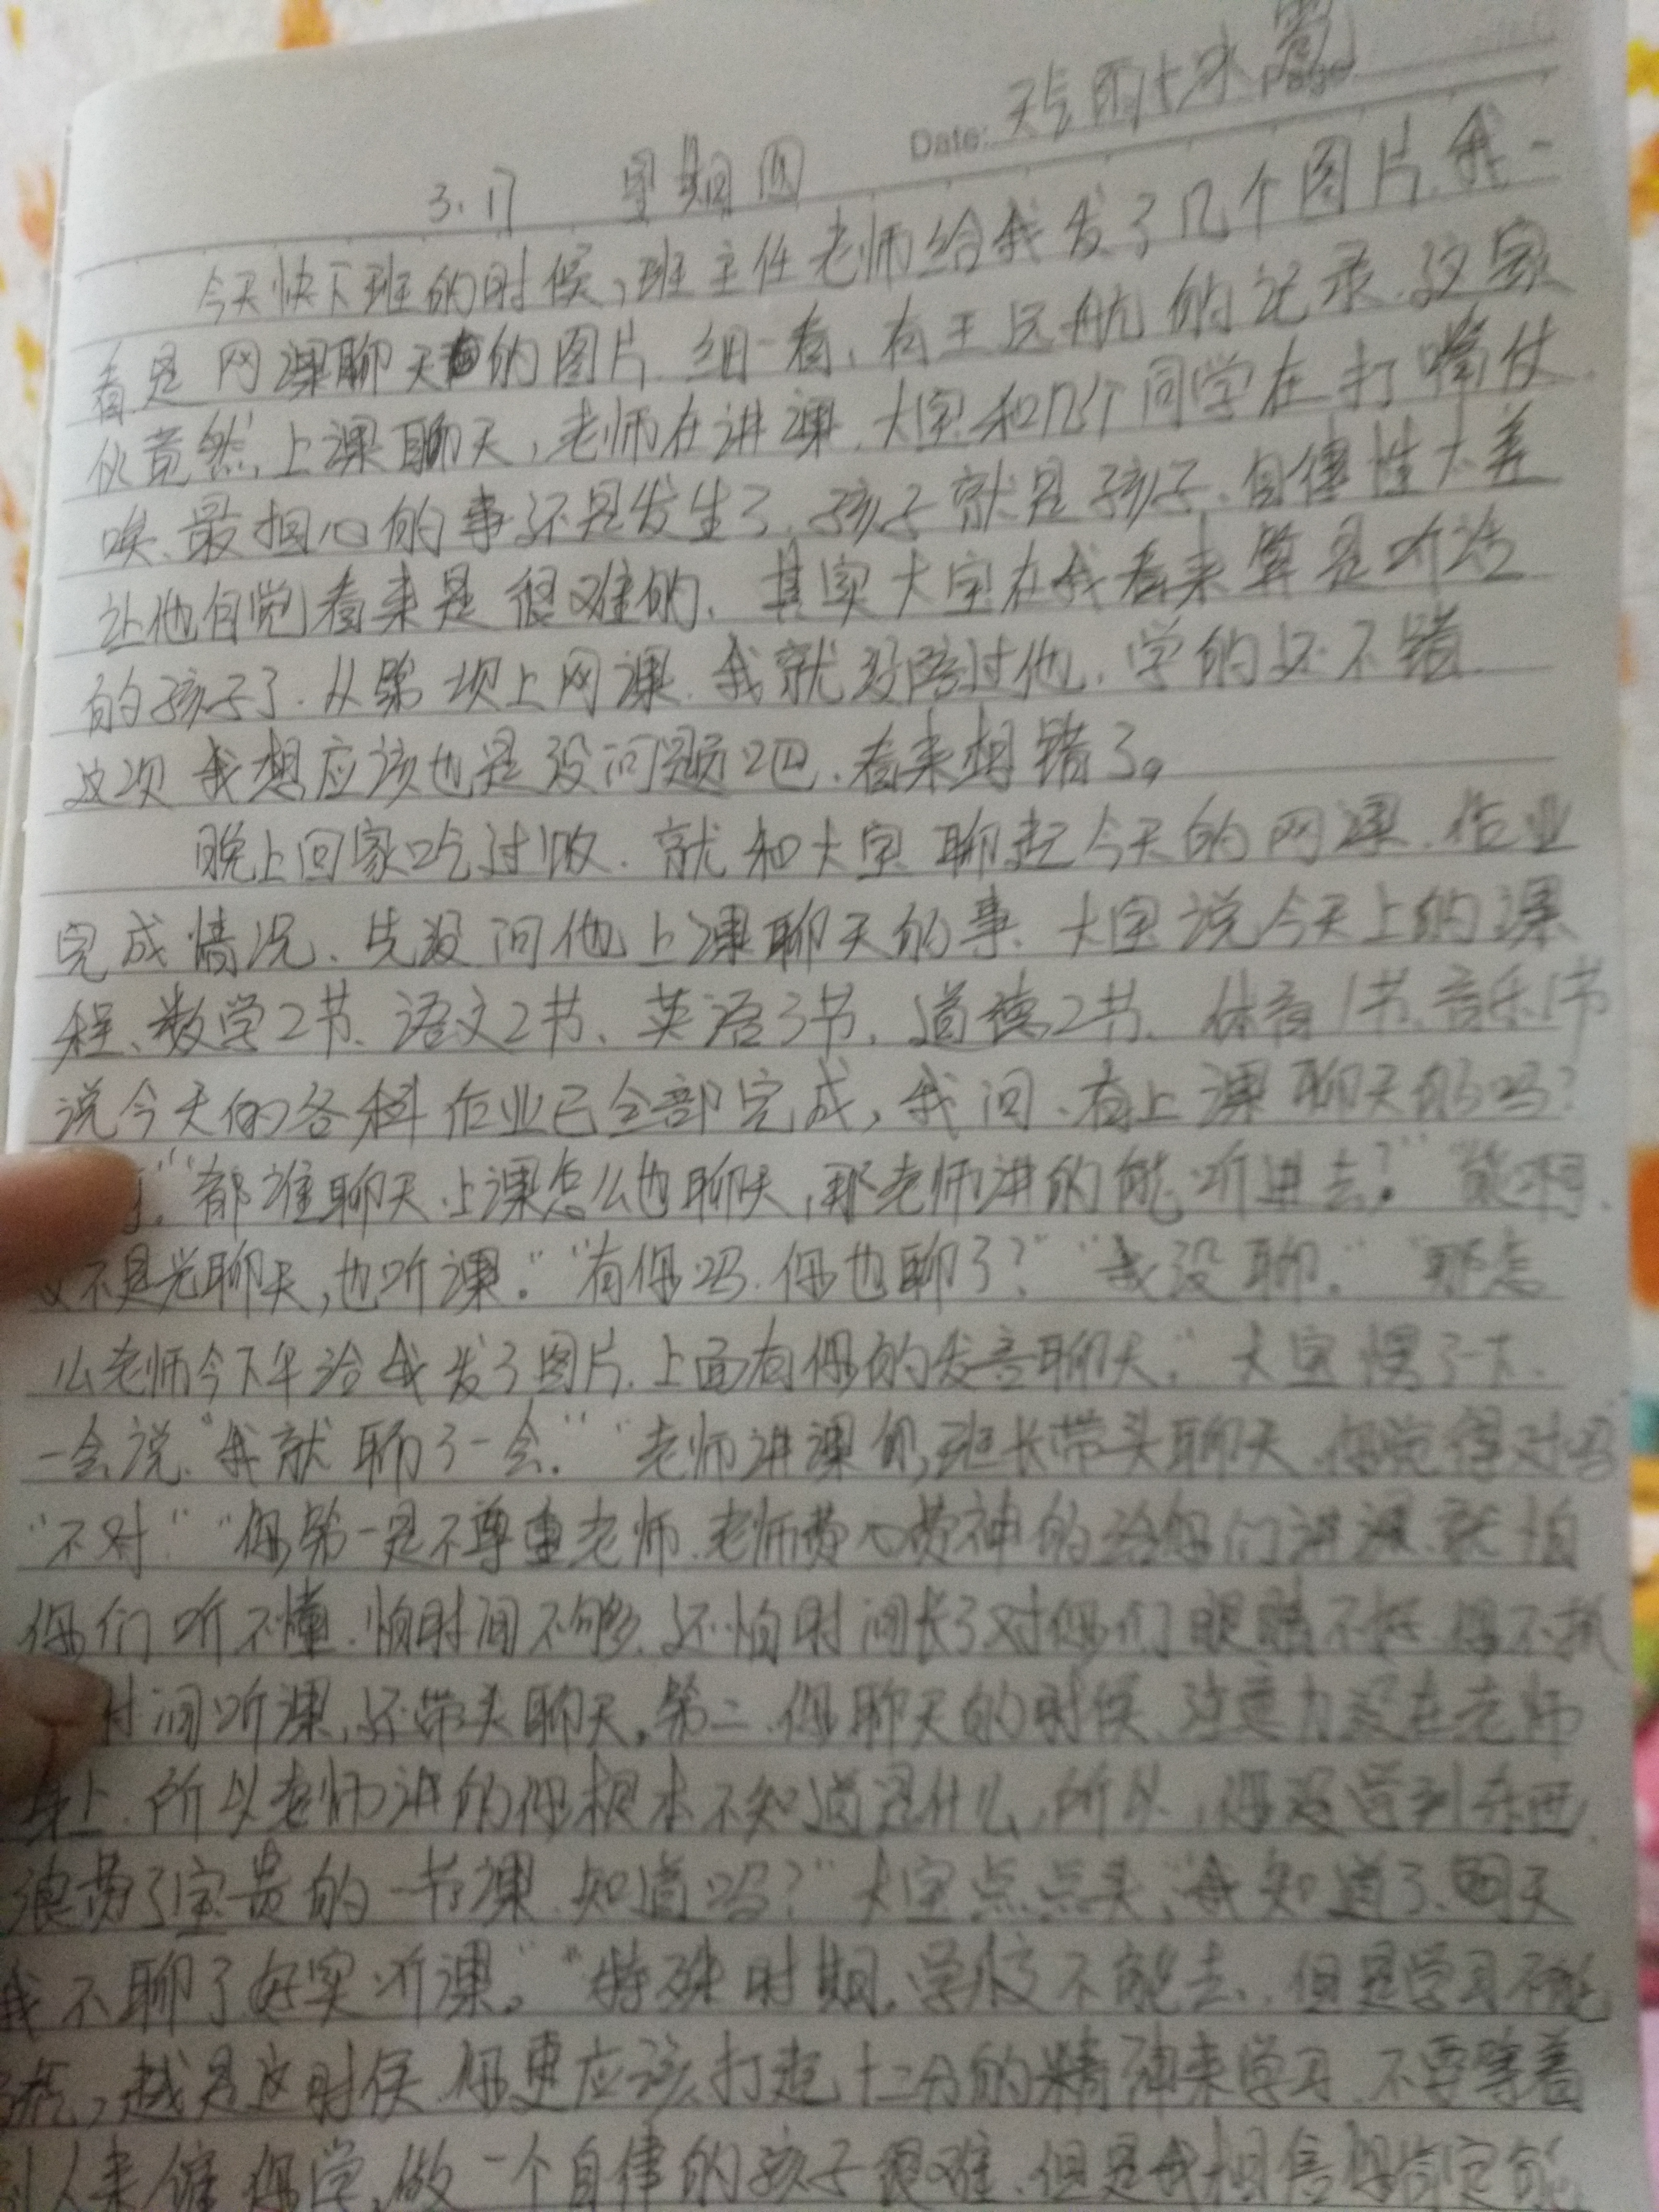 Date: 天气 雨+冰雹
3.17 星期四
今天快下班的时候,班主任老师给我发了几个图片.我一
看是网课聊天的图片.细一看,有王远航的记录.这家
伙竟然,上课聊天,老师在讲课.大宝和几个同学在打嘴仗.
唉、最担心的事还是发生了.孩子就是孩子.自律性太差
让他自觉看来是很难的.其实大宝在我看来算是听话
的孩子了.从第一次上网课.我就没陪过他.学的还不错.
这次我想应该也是没问题吧.看来想错了。
晚上回家吃过饭.就和大宝聊起今天的网课.作业
完成情况、先没问他上课聊天的事.大宝说今天上的课
程、数学2节、语文2节、英语3节、道德2节、体育1节、音乐1节
说今天的各科作业已全部完成,我问、有上课聊天的吗?
"都谁聊天.上课怎么也聊天,那老师讲的能听进去?""能啊.
又不是光聊天,也听课。""有你吗.你也聊了?""我没聊.""那怎
么老师今下午给我发了图片.上面有你的发言聊天."大宝愣了一下.
一会说."我就聊了一会.""老师讲课你,班长带头聊天.你觉得对吗
"不对""你第一是不尊重老师.老师费心费神的给你们讲课.就怕
你们听不懂.怕时间不够.还怕时间长了对你们眼睛不好.你不抓
时间听课,还带头聊天。第二.你聊天的时候.注意力没在老师
身上.所以老师讲的你根本不知道是什么,所以,你没学到东西.
浪费了宝贵的一节课.知道吗?"大宝点点头,"我知道了.明天
我不聊了好实听课。""特殊时期.学校不能去.但是学习不能
,越是这时候.你更应该打起十二分的精神来学习.不要等着
别人来催你学,做一个自律的孩子很难.但是我相信你肯定能